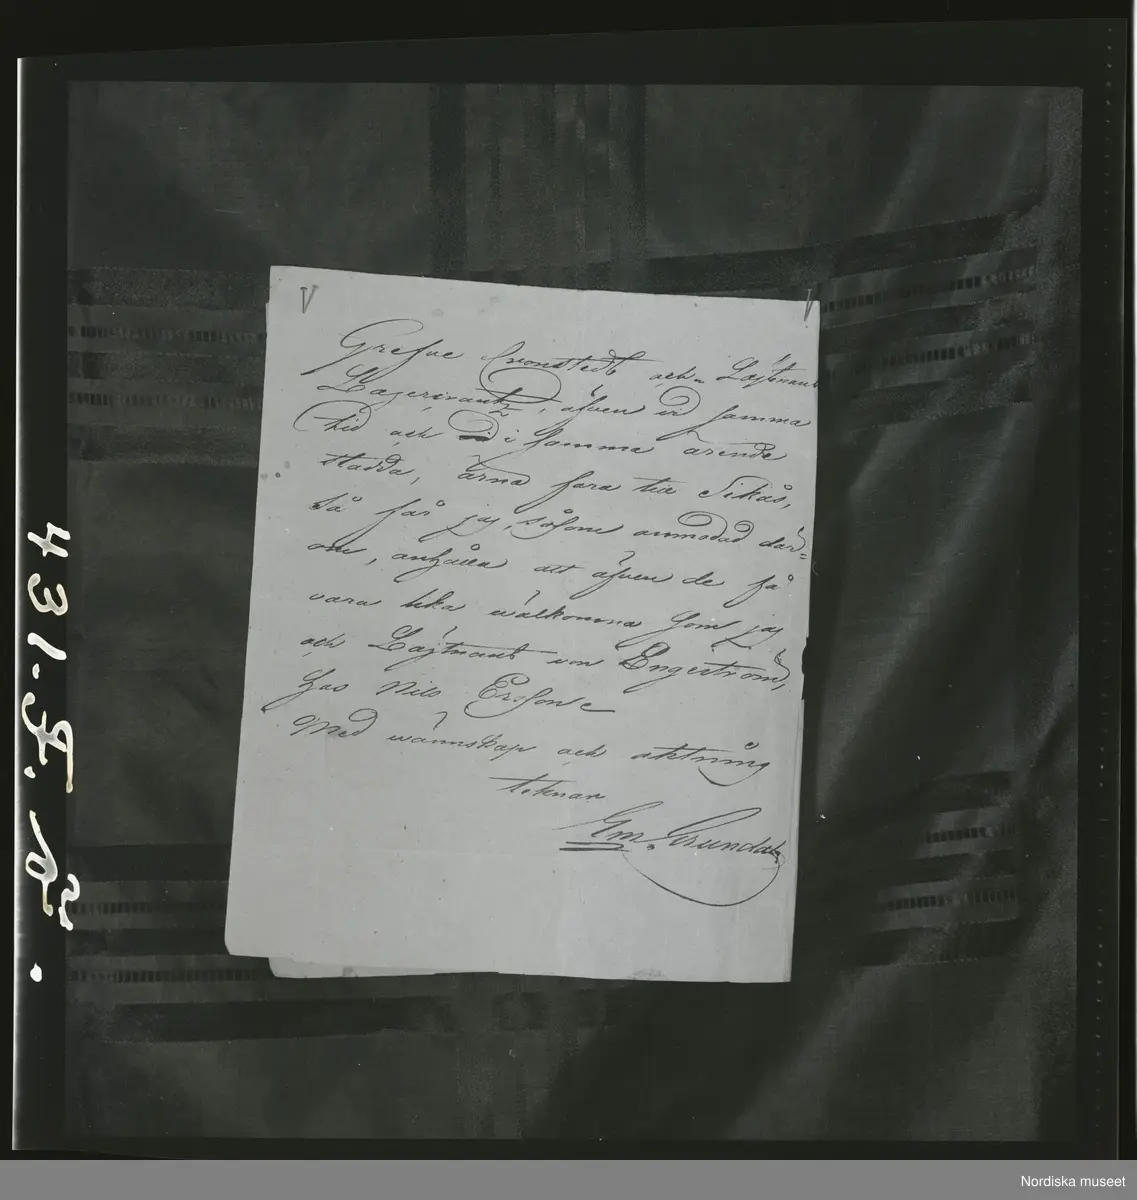 Grefve Cronstedt och Löjtnant
Lagercrantz, äfven vid samma
tid och i samma ärende
stadda, ärna fara till Sikås,
så får jag, såsom anmodad där=
om, anhålla att äfven de få
vara lika wälkomna som jag
och Löjtnant von Engeström,
hos Nils Ersson
Med wännskap och aktning
teknar
Em. Grundal
431.F.
Nordiska museet